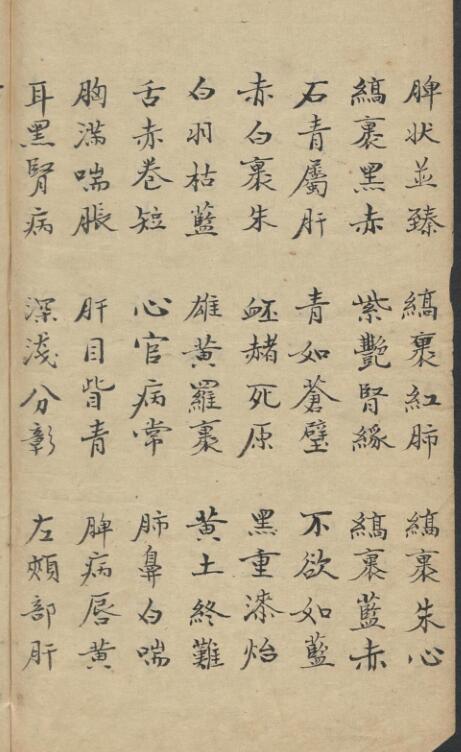 脾状並臻 縞裹紅肺 縞裹朱心
縞裹黑赤 紫艷腎緣 縞裹藍赤
石青屬肝 青如蒼璧 不欲如藍
赤白裹朱 衃赭死原 黑重漆炲
白羽枯藍 雄黃羅裹 黃土終難
舌赤卷短 心官病常 肺鼻白喘
胸滿喘脹 肝目眥青 脾病唇黃
耳黑腎病 深淺分彰 左頰部肝